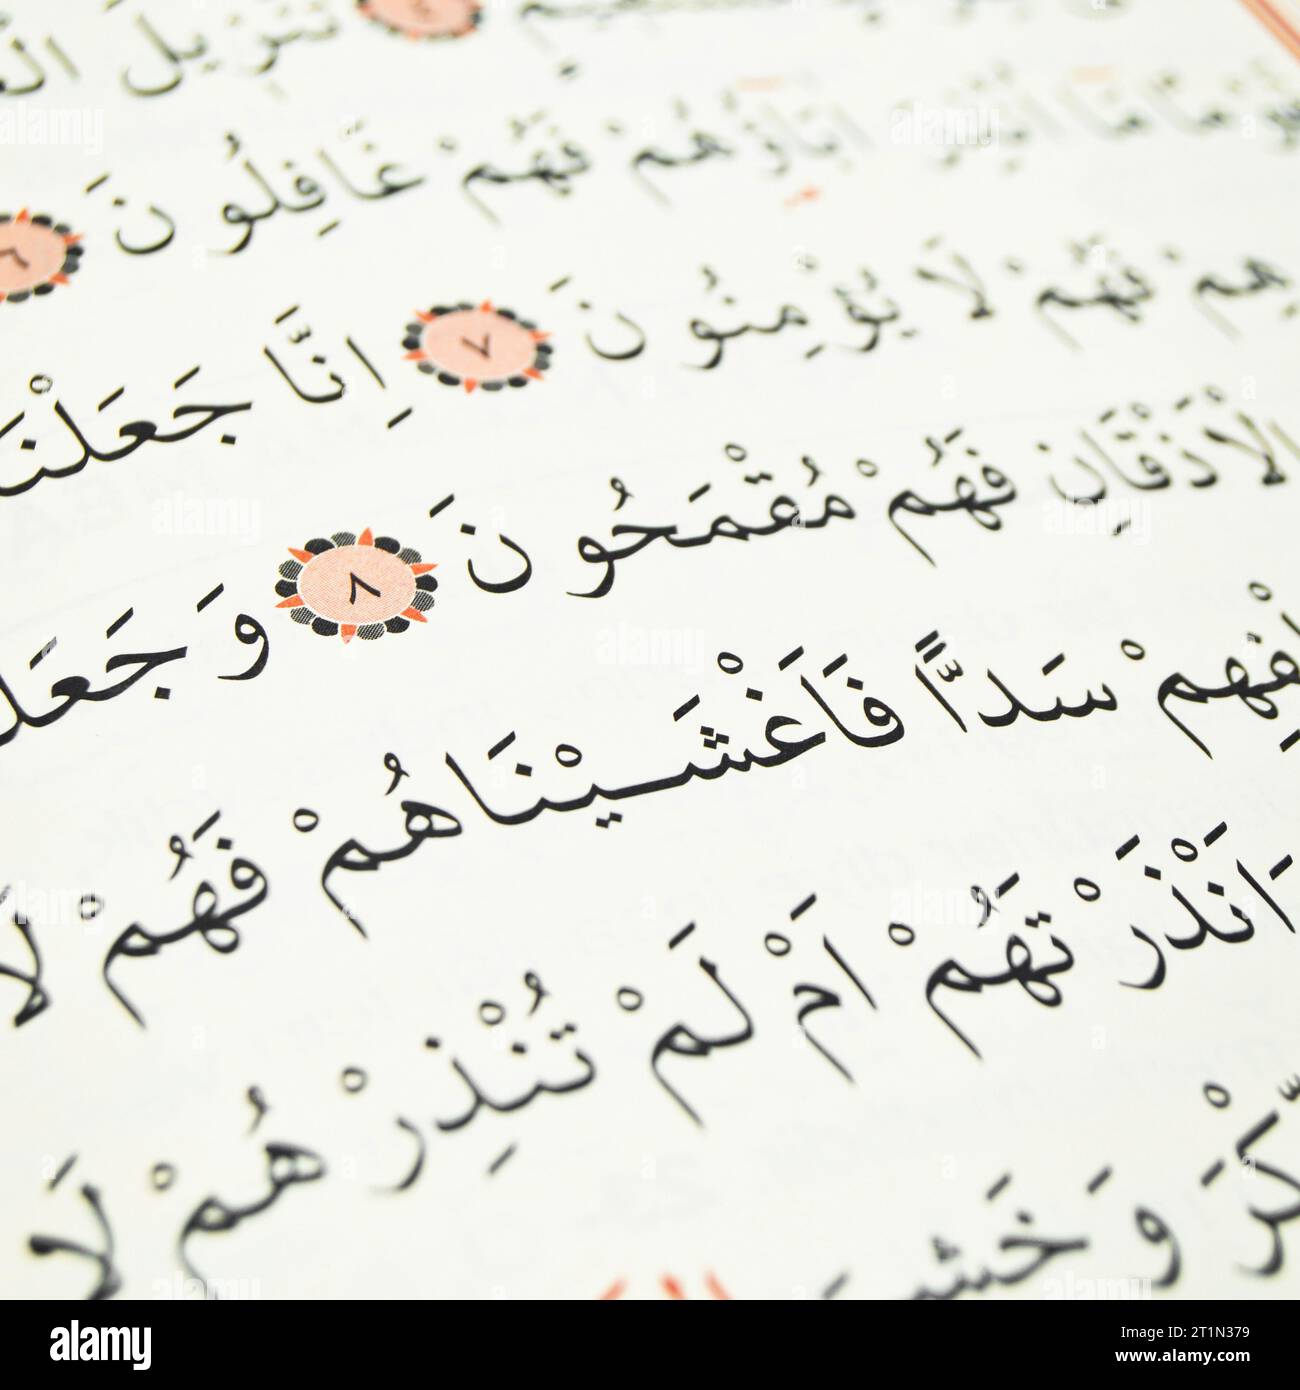 تَنْزِيلَ
مَٓا اُنْذِرَ اٰبَٓاؤُ۬هُمْ فَهُمْ غَافِلُونَ ٦
هِمْ فَهُمْ لَا يُؤْمِنُونَ ٧ اِنَّا جَعَلْنَا
الْاَذْقَانِ فَهُمْ مُقْمَحُونَ ٨ وَجَعَلْ
لْفِهِمْ سَدًّا فَاَغْشَيْنَاهُمْ فَهُمْ لَا
ءَاَنْذَرْتَهُمْ اَمْ لَمْ تُنْذِرْهُمْ لَا
كْرَ وَخَشِيَ
alamy
Image ID: 2T1N379
www.alamy.com